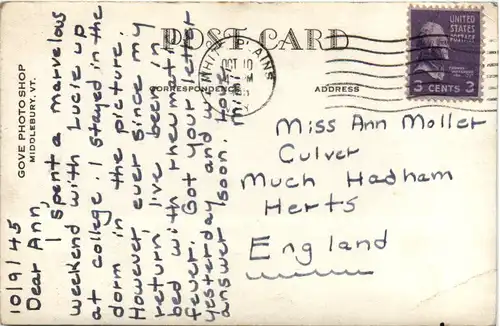 POST CARD
CORRESPONDENCE
ADDRESS
GOVE PHOTOSHOP
MIDDLEBURY, VT.
10/9/45
Dear Ann,
I spent a marvelous
weekend with Lucie up
at college. I stayed in the
dorm in the picture.
However ever since my
return, I've been in
bed with rheumatic
fever. Got your letter
yesterday and will
answer soon. Love
PLAINS
OCT 10
PM
UNITED
STATES
POSTAGE
3 CENTS 3
Miss Ann Moller
Culver
Much Hadham
Herts
England